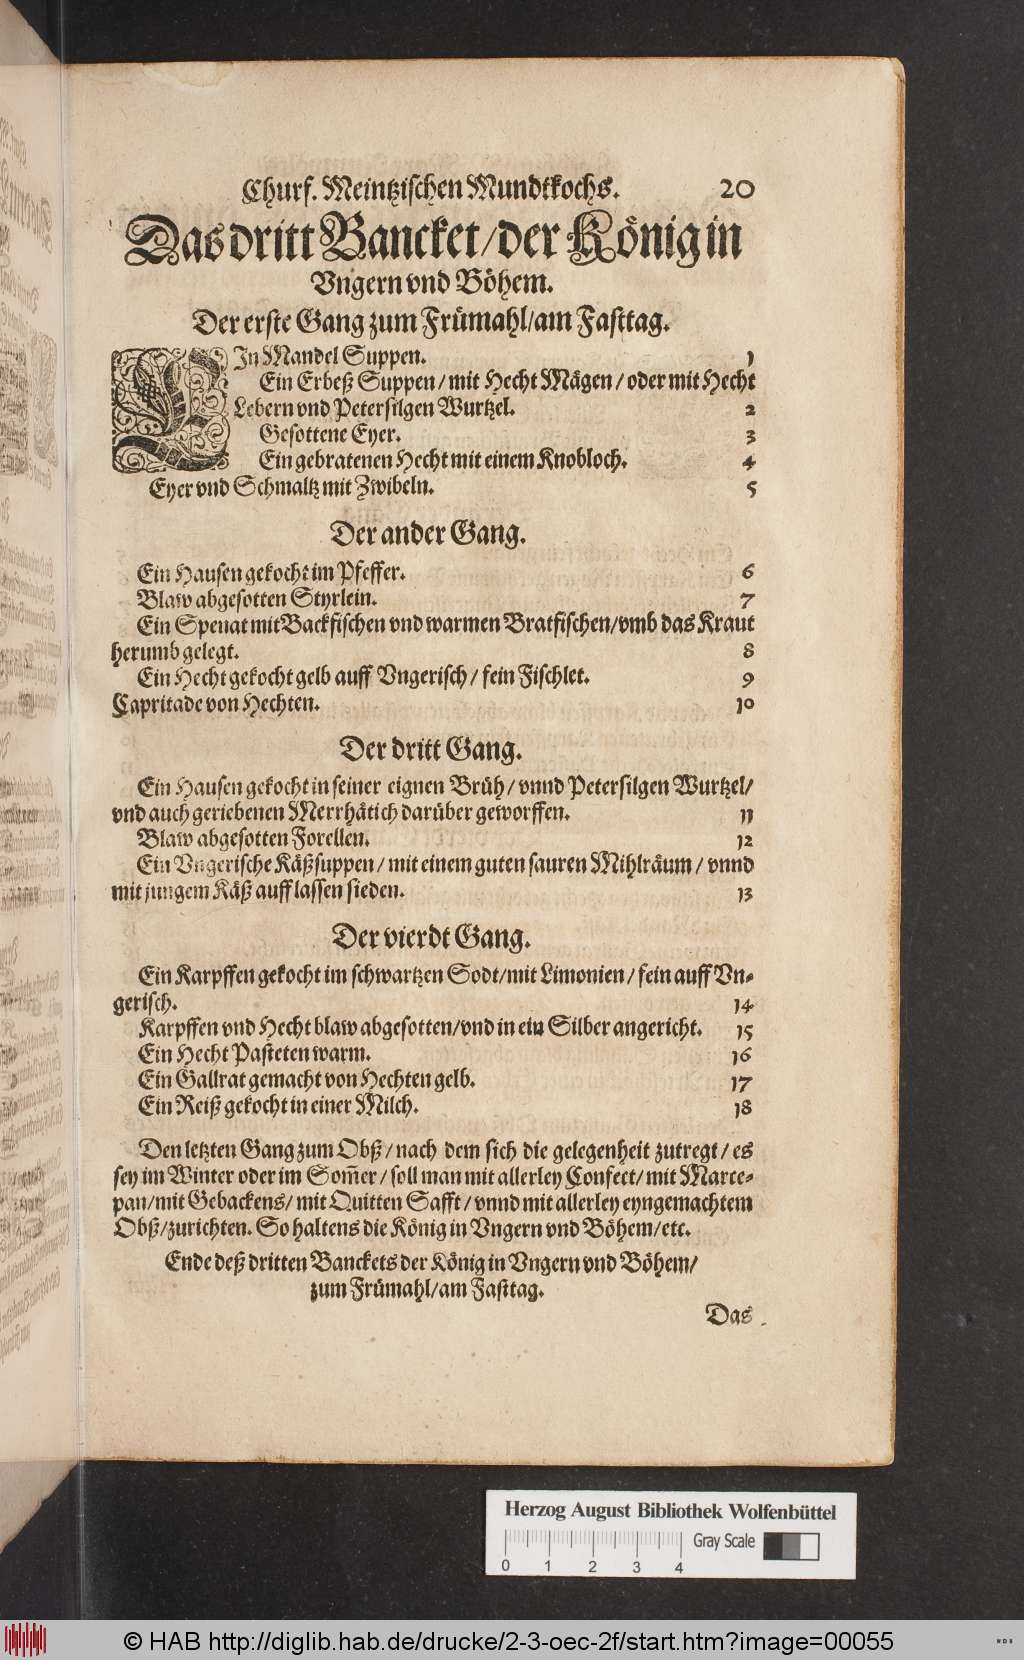 Churf. Meintzischen Mundtkochs. 20
Das dritt Bancket/der Königin
Vngern vnd Böhem.
Der erste Gang zum Frümahl/am Fasttag.
EIn Mandel Suppen. 1
Ein Erbeß Suppen/mit Hecht Mägen/oder mit Hecht
Lebern vnd Petersilgen Wurtzel. 2
Gesottene Eyer. 3
Ein gebratenen Hecht mit einem Knobloch. 4
Eyer vnd Schmaltz mit Zwibeln. 5
Der ander Gang.
Ein Hausen gekocht im Pfeffer. 6
Blaw abgesotten Styrlein. 7
Ein Spenat mit Backfischen vnd warmen Bratfischen/vmb das Kraut
herumb gelegt. 8
Ein Hecht gekocht gelb auff Vngerisch/fein Fischlet. 9
Capritade von Hechten. 10
Der dritt Gang.
Ein Hausen gekocht in seiner eignen Brüh/vnnd Petersilgen Wurtzel/
vnd auch geriebenen Merrhätich darüber geworffen. 11
Blaw abgesotten Forellen. 12
Ein Vngerische Käßsuppen/mit einem guten sauren Mihlräum/vnnd
mit jungem Käß auff lassen sieden. 13
Der vierdt Gang.
Ein Karpffen gekocht im schwartzen Sodt/mit Limonien/fein auff Vn-
gerisch. 14
Karpffen vnd Hecht blaw abgesotten/vnd in ein Silber angericht. 15
Ein Hecht Pasteten warm. 16
Ein Gallrat gemacht von Hechten gelb. 17
Ein Reiß gekocht in einer Milch. 18
Den letzten Gang zum Obß/nach dem sich die gelegenheit zutregt/es
sey im Winter oder im Som̄er/soll man mit allerley Confect/mit Marce-
pan/mit Gebackens/mit Quitten Safft/vnnd mit allerley eyngemachtem
Obß/zurichten. So haltens die König in Vngern vnd Böhem/etc.
Ende deß dritten Banckets der König in Vngern vnd Böhem/
zum Frümahl/am Fasttag.
Das
Herzog August Bibliothek Wolfenbüttel
0 1 2 3 4 Gray Scale
© HAB http://diglib.hab.de/drucke/2-3-oec-2f/start.htm?image=00055